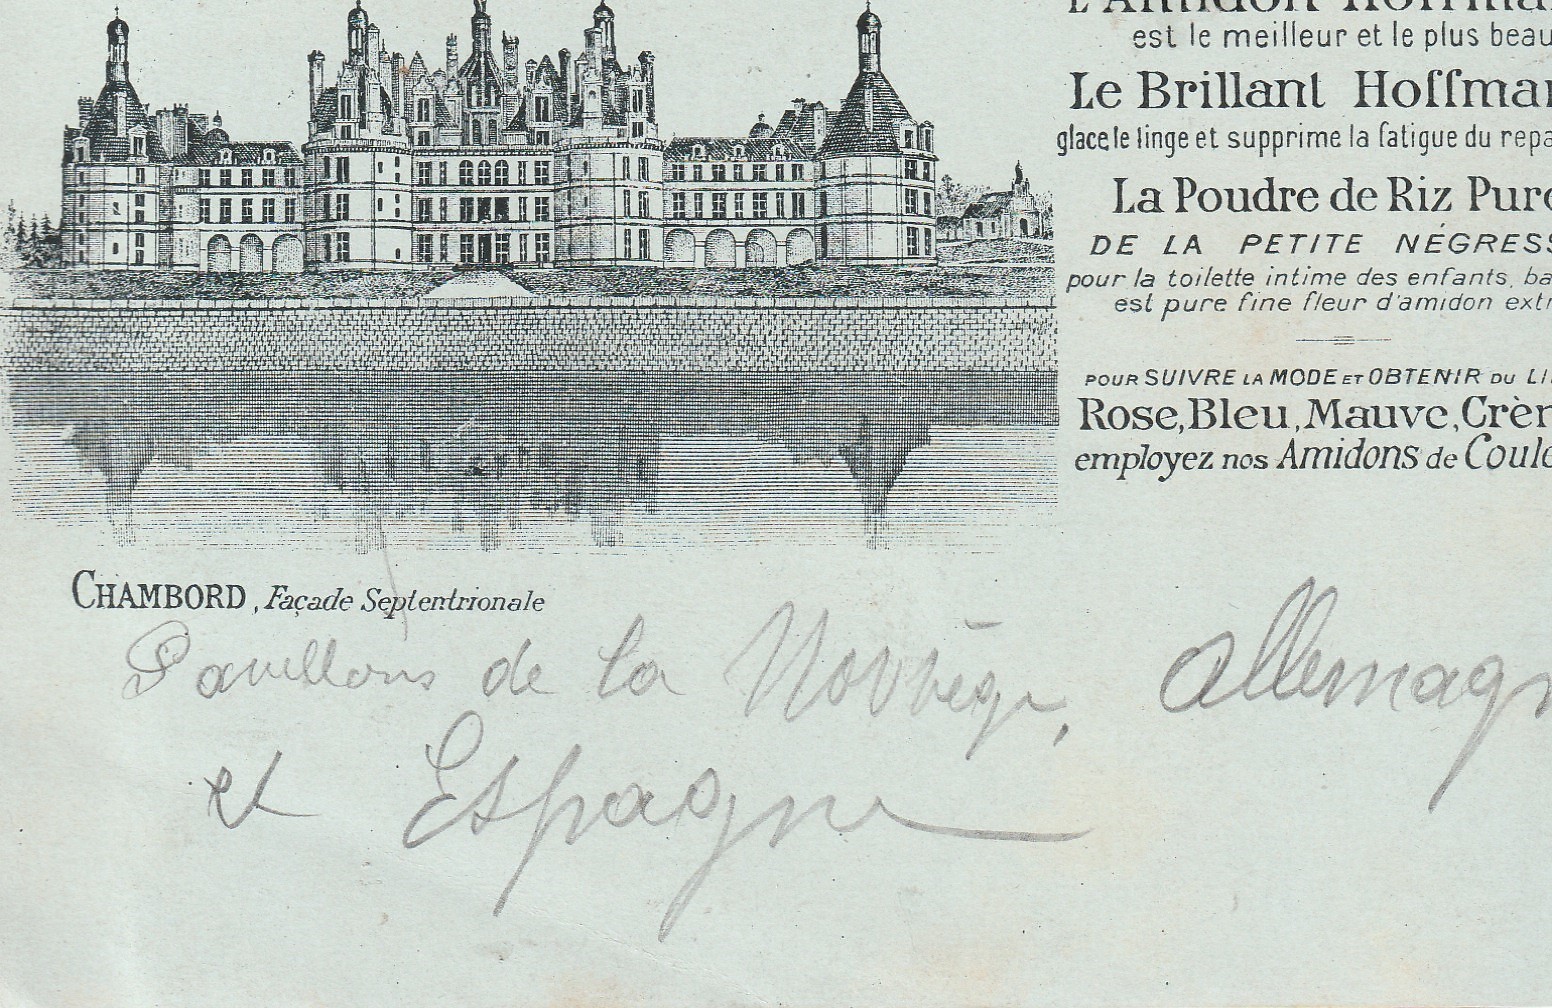 L'Amidon Hoffma
est le meilleur et le plus beau
Le Brillant Hoffma
glace le linge et supprime la fatigue du repa
La Poudre de Riz Pure
DE LA PETITE NÉGRESS
pour la toilette intime des enfants, ba
est pure fine fleur d'amidon extr
POUR SUIVRE LA MODE ET OBTENIR DU LI
Rose, Bleu, Mauve, Crèm
employez nos Amidons de Coule
CHAMBORD, Façade Septentrionale
Pavillons de la Norvège, Allemagn
et Espagne